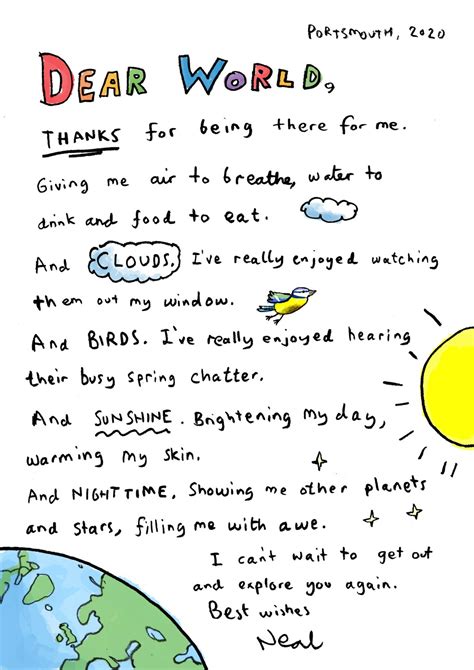 PORTSMOUTH, 2020
DEAR WORLD,
THANKS for being there for me.
Giving me air to breathe, water to
drink and food to eat.
And CLOUDS. I've really enjoyed watching
them out my window.
And BIRDS. I've really enjoyed hearing
their busy spring chatter.
And SUNSHINE. Brightening my day,
warming my skin.
And NIGHT TIME. Showing me other planets
and stars, filling me with awe.
I can't wait to get out
and explore you again.
Best wishes
Neal